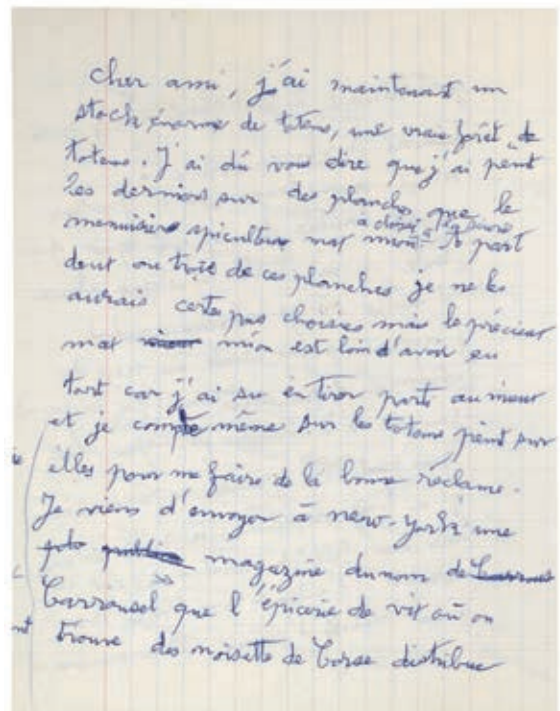 cher ami, j'ai maintenant un
stock énorme de totems, une vraie forêt de
totems. J'ai dû vous dire que j'ai peint
les derniers sur des planches que le
menuisier apiculteur a choisi
A part
deux ou trois de ces planches je ne les
aurais certes pas choisies mais le précieux
mat est loin d'avoir eu
tort car j'ai su en tirer parti au mieux
et je compte même sur les totems peint sur
elles pour me faire de la bonne réclame.
Je viens d'envoyer à new-york une
magazine du nom de
Carrousel que l'épicerie de vit où on
trouve des noisette de Corse distribue